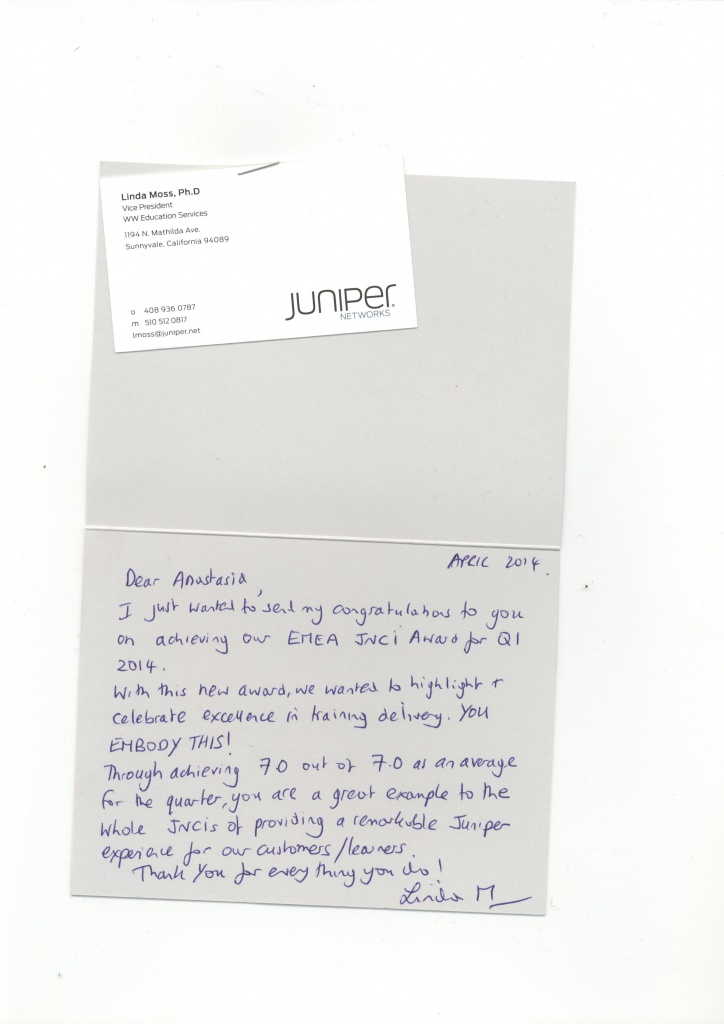 Linda Moss, Ph.D
Vice President
WW Education Services
1194 N. Mathilda Ave.
Sunnyvale, California 94089
o 408 936 0787
m 510 512 0817
lmoss@juniper.net
JUNIPER
NETWORKS
APRIL 2014.
Dear Anastasia,
I just wanted to send my congratulations to you
on achieving our EMEA JNCI Award for Q1
2014.
With this new award, we wanted to highlight +
celebrate excellence in training delivery. YOU
EMBODY THIS!
Through achieving 7.0 out of 7.0 as an average
for the quarter, you are a great example to the
whole JNCIs of providing a remarkable Juniper
experience for our customers/learners.
Thank You for every thing you do!
Linda M